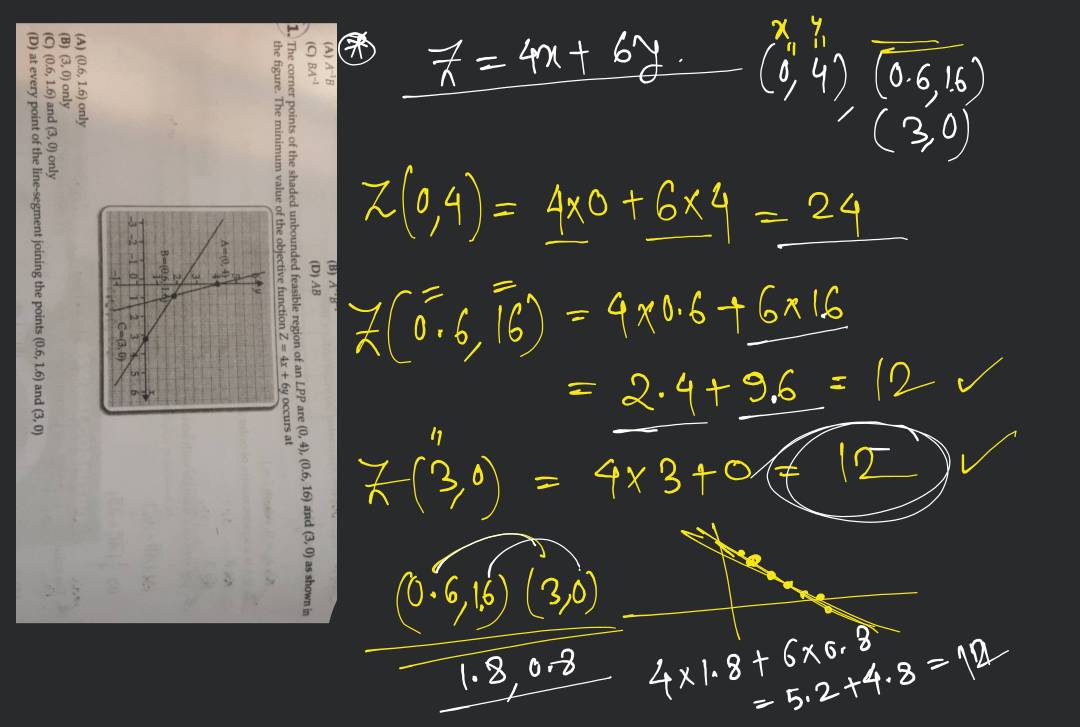 (A) A⁻¹B
(C) BA⁻¹
(D) AB
1. The corner points of the shaded unbounded feasible region of an LPP are (0, 4), (0.6, 16) and (3, 0) as shown in
the figure. The minimum value of the objective function Z = 4x + 6y occurs at
A=(0, 4)
B=(0.6, 1.6)
C=(3, 0)
-3 -2 -1 0 1 2 3 4 5 6
(A) (0.6, 1.6) only
(B) (3, 0) only
(C) (0.6, 1.6) and (3, 0) only
(D) at every point of the line-segment joining the points (0.6, 1.6) and (3, 0)
* Z = 4x + 6y.
x y
(0, 4), (0.6, 1.6)
(3, 0)
Z(0,4) = 4x0 + 6x4 = 24
Z(0.6, 16) = 4x0.6 + 6x1.6
= 2.4 + 9.6 = 12 ✓
Z(3,0) = 4x3+0 = 12 ✓
(0.6, 1.6) (3,0)
1.8, 0.8
4x1.8 + 6x0.8
= 5.2+4.8 = 12